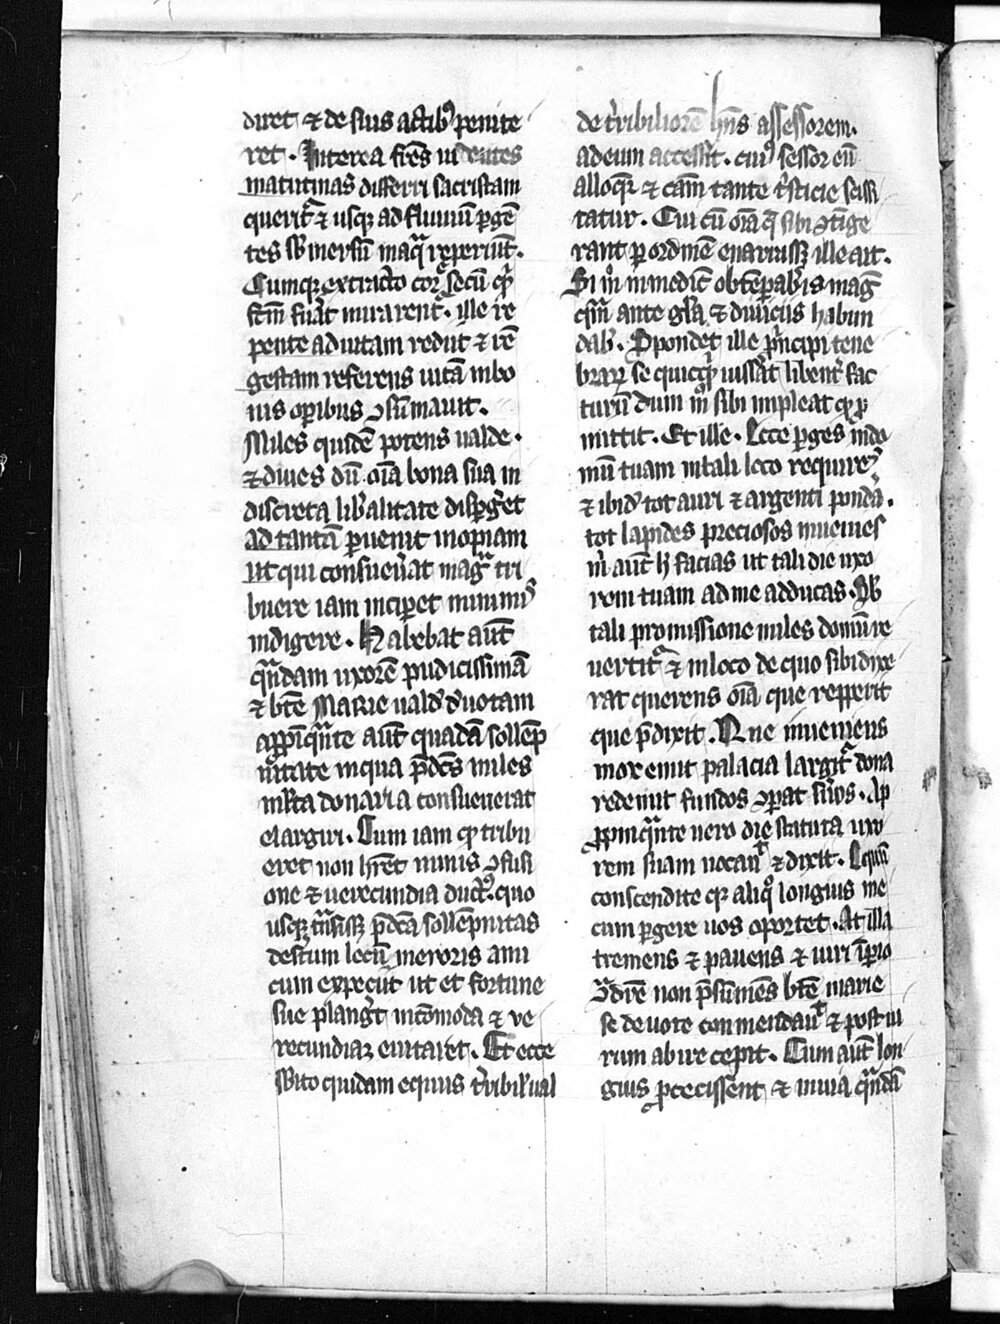 diret ⁊ de suis actibꝰ penite
ret . Interea fr̄es uidentes
matutinas differri sacristam
querūt ⁊ usqꝫ ad fluuiū ꝑgē
tes sb̄mersū in aqͣ reperiūt .
Cumqꝫ extracto corꝑe secū qͥd
fcm̄ fuͦat mirarent̉ . ille re
pente ad uitam rediit ⁊ rē
gestam referens uitā in bo
nis oꝑibus ↄsūmauit .
Miles quidē potens ualde .
⁊ diues dū oīa bona sua in
discreta lib̉alitate disꝑg̉et
ad tantā ꝑuenit inopiam
ut qui consueủat magͣ tri
buere iam inciꝑet minimis
indigere . Habebat aūt
qͣndam uxorē pudicissimā
⁊ btē Marie uald̉ d̉uotam
aꝓpinqͣnte aūt quadā sollēp
nitate in qua p̄dcūs miles
ml̄ta donaria consueuerat
elargiri . Cum iam qd tribu
eret non hr̄et nimis ↄfusi
one ⁊ uerecundia ductꝰ . quo
usqꝫ tͣnsisꝫ p̄dcā sollēpnitas
desertum locū meroris ami
cum expeciit ut et fortune
sue plang̉et incōmoda ⁊ ve
recundiaꝫ euitaret . Et ecce
sb̄ito quidam equus t̉ribil' ual
de t̉ribiliorē hn̄s assessorem .
ad eum accessit . cuiꝰ sessor eū
alloqͥt̉ ⁊ cām tante tͥsticie scisi
tatur . Cui cū oīa q̄ sibi ↄtige
rant ꝑ ordinē enarrasꝫ ille ait .
Si m̊ in modico obtēꝑab̉is magͥ
qͣm ante gl̄ia ⁊ diuiciis habun
dab̉ . Spondet ille pͥncipi tene
braꝝ se quicqͥd iussͥit libent̉ fac
turū dum m̊ sibi impleat qd ꝓ
mittit . Et ille . Ecce ꝑges in do
mū tuam in tali loco requires
⁊ ibid̉ tot auri ⁊ argenti pond̉a .
tot lapides preciosos inuenies
m̊ aūt h̊ facias ut tali die uxo
rem tuam ad me adducas . Sb̄
tali promissione miles domū re
uertit̉ ⁊ in loco de quo sibi dixe
rat querens oīa que repperit
que p̄dixit . Nne inueniens
mox emit palacia largit̉ dona
redemit fundos ↄꝑat s̉uos . Ap
ꝓpinqͣnte uero die statuta uxo
rem suam uocauͥt ⁊ dixit . Equū
conscendite qꝛ aliqͦ longius me
cum ꝑgere uos oportet . At illa
tremens ⁊ pauens ⁊ uiri īꝑio
ↄtͣdice non p̄sumēs btē marie
se deuote commendauͥt ⁊ post ui
rum abire cepit . Cum aūt lon
gius ꝓcecissent ⁊ in uia qͣndā